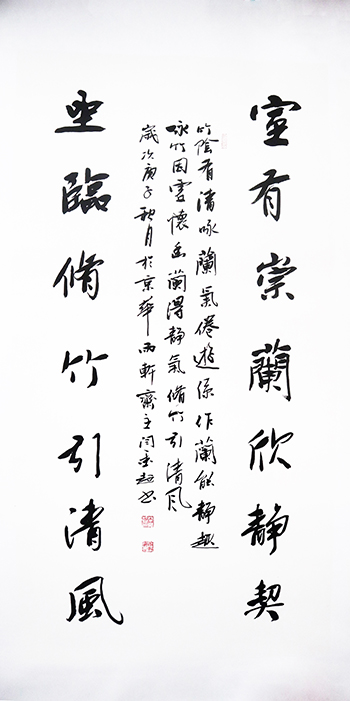 室有崇蘭欣靜契
竹陰有清咏蘭氣倦遊係作蘭能靜趣
咏竹因虛懷幽蘭得靜氣脩竹引清风
歲次庚子秋月於京華雨軒齋主
坐臨脩竹引清風